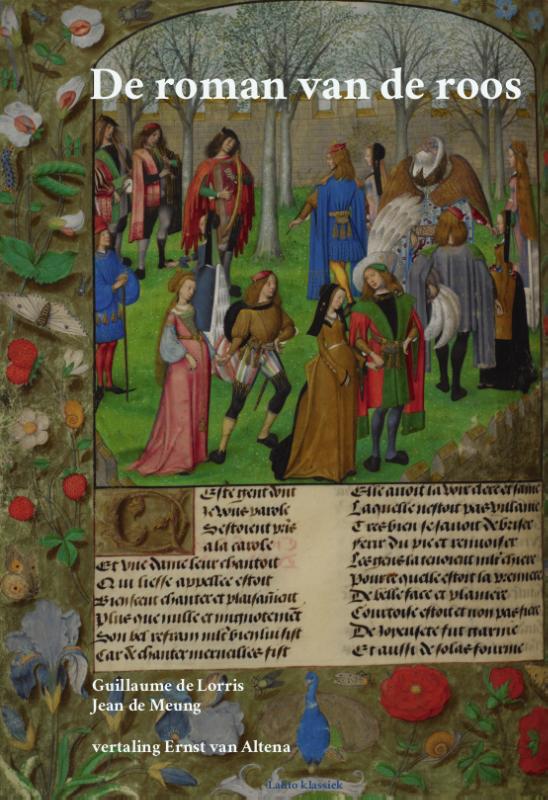 De roman van de roos
Ceste gent dont
je vous parole
Sestoient pris
a la carole
Et une dame leur chantoit
Qui liesse appellee estoit
Bien sceut chanter et plaisamment
Plus que nulle et mignotement
Son bel refrain mlt bien lui fist
Car de chanter merveilles fist
Elle avoit la voix clere et saine
Laquelle nestoit pas vilaine
Tres bien se savoit debriser
Ferir du pie et renvoiser
Les gens la tenoient mlt chiere
Pource quelle estoit la premiere
De belle face et planiere
Courtoise estoit et non pas fiere
De
Et aussi de solas fourme
Guillaume de Lorris
Jean de Meung
vertaling Ernst van Altena
Lalito klassiek